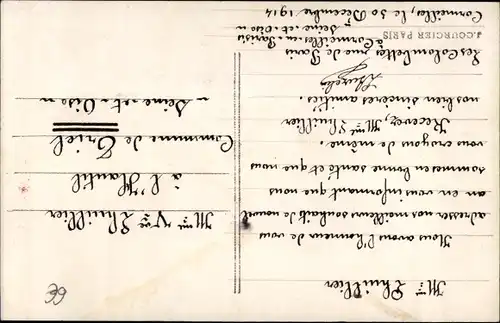 Cormeilles, le 30 Décembre 1914
Mme Lhuillier
Nous avons l'honneur de vous
adresser nos meilleurs souhaits de nouvel
an en vous informant que nous
sommes en bonne santé et que nous
vous croyons de même.
Recevez, Mme Lhuillier
nos bien sincères amitiés.
Les Colombettes rue de Paris
à Cormeilles-en-Parisis
" Seine-et-Oise "
J. COURCIER PARIS
Mme Vve Lhuillier
à l'Hautil
Commune de Triel
" Seine-et-Oise "